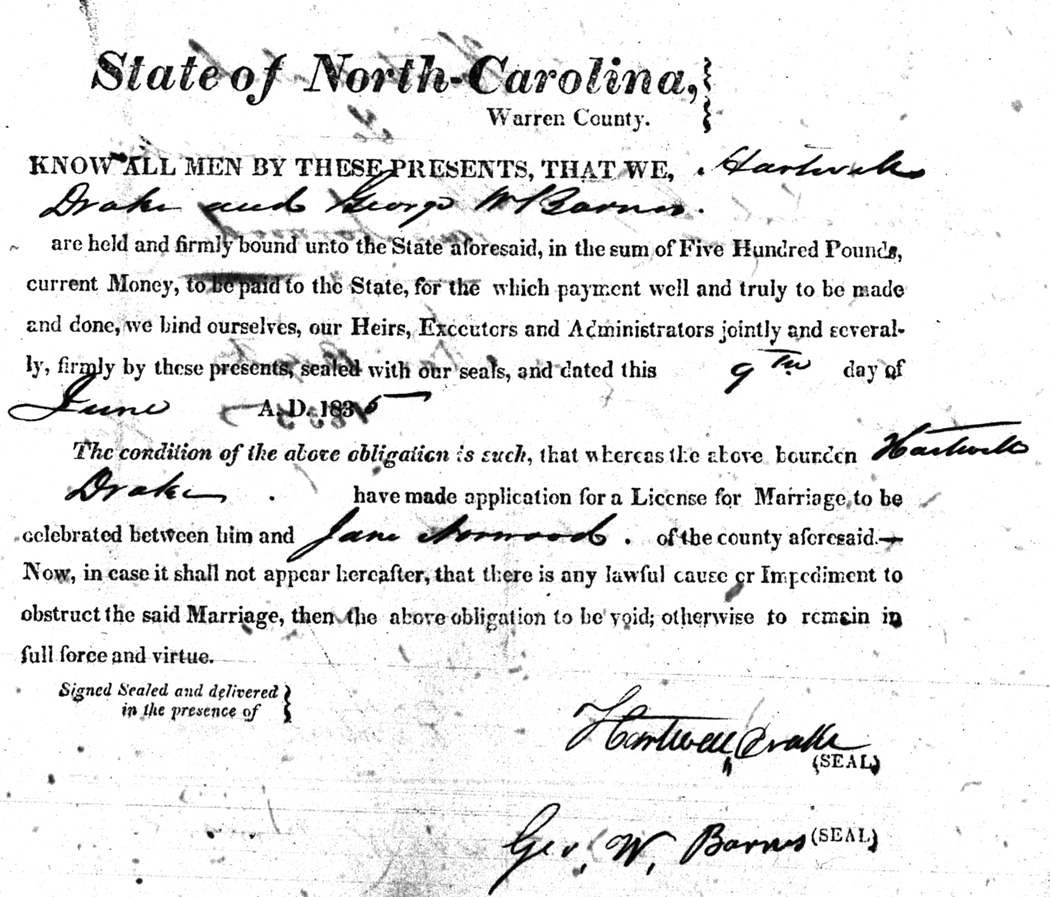 State of North-Carolina,
Warren County.
KNOW ALL MEN BY THESE PRESENTS, THAT WE, Hartwell
Drake and George W Barnes.
are held and firmly bound unto the State aforesaid, in the sum of Five Hundred Pounds,
current Money, to be paid to the State, for the which payment well and truly to be made
and done, we bind ourselves, our Heirs, Executors and Administrators jointly and several-
ly, firmly by these presents, sealed with our seals, and dated this 9th day of
June A. D. 1835
The condition of the above obligation is such, that whereas the above bounden Hartwell
Drake have made application for a License for Marriage to be
celebrated between him and Jane Norwood. of the county aforesaid.—
Now, in case it shall not appear hereafter, that there is any lawful cause or Impediment to
obstruct the said Marriage, then the above obligation to be void; otherwise to remain in
full force and virtue.
Signed Sealed and delivered
in the presence of
Hartwell Drake
(SEAL)
Geo. W. Barnes (SEAL)